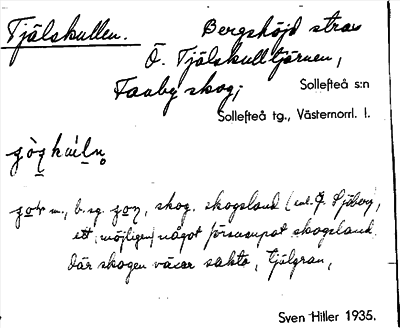 Tjälskullen. Bergshöjd strax
Ö. Tjälskulltjärnen,
Tanby skog;
Sollefteå s:n
Sollefteå tg., Västernorrl. l.
m., b. sg. skog, skogsland (enl. J. Sjöberg,
ett (möjligen) något försumpat skogsland.
där skogen växer sakta, tjälgran,
Sven Hiller 1935.